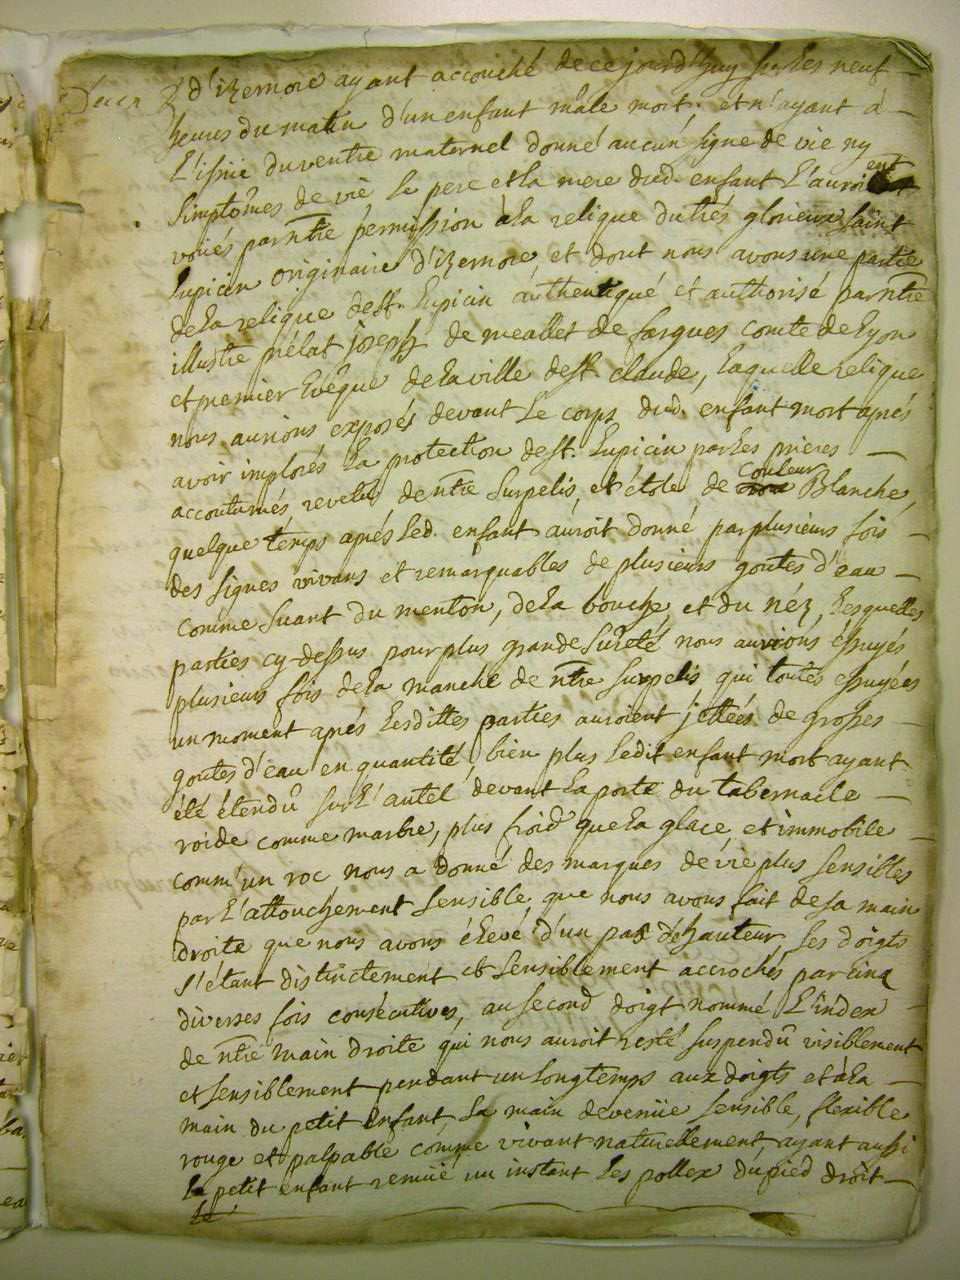 d'izernore ayant accouché de ce jourd'huy sur les neuf
heures du matin d'un enfant mâle mort, et n'ayant à
l'issüe du ventre maternel donné aucun signe de vie ny
simptômes de vie le pere et la mere dud. enfant l'auroient
voüés par ntre permission à la relique du trés glorieux saint
lupicin originaire d'izernore, et dont nous avons une partie
de la relique de st. lupicin authentiqué et authorisé par ntre
illustre prélat joseph de meallet de fargues comte de lyon
et premier Evêque de la ville de st. claude, laquelle relique
nous aurions exposés devant le corps dud. enfant mort aprés
avoir implorés la protection de st. lupicin par les prieres
accoutumés revetu de ntre surpelis, et étole de couleur Blanche,
quelque temps aprés led. enfant auroit donné par plusieurs fois
des signes vivans et remarquables de plusieurs goutes d'eau
comme suant du menton, de la bouche, et du néz, lesquelles
parties cy-dessus pour plus grande sûreté nous aurions éssuyés
plusieurs fois de la manche de ntre surpelis qui toutes essuyées
un moment aprés lesdittes parties auroient jettées de grosses
goutes d'eau en quantité, bien plus ledit enfant mort ayant
été étendû sur l'autel devant la porte du tabernacle
roide comme marbre, plus froid que la glace, et immobile
comm'un roc, nous a donné des marques de vie plus sensibles
par l'attouchement sensible, que nous avons fait de sa main
droite que nous avons élevé d'un pas d'hauteur, ses doigts
s'étant distinctement et sensiblement accrochés par cinq
diverses fois consécutives, au second doigt nommé l'index
de ntre main droite qui nous auroit resté suspendû visiblement
et sensiblement pendant un longtemps aux doigts et à la
main du petit enfant, sa main devenüe sensible, flexible
rouge et palpable comme vivant naturellement, ayant aussi
le petit enfant remüé un instant les pollex du pied droit
le